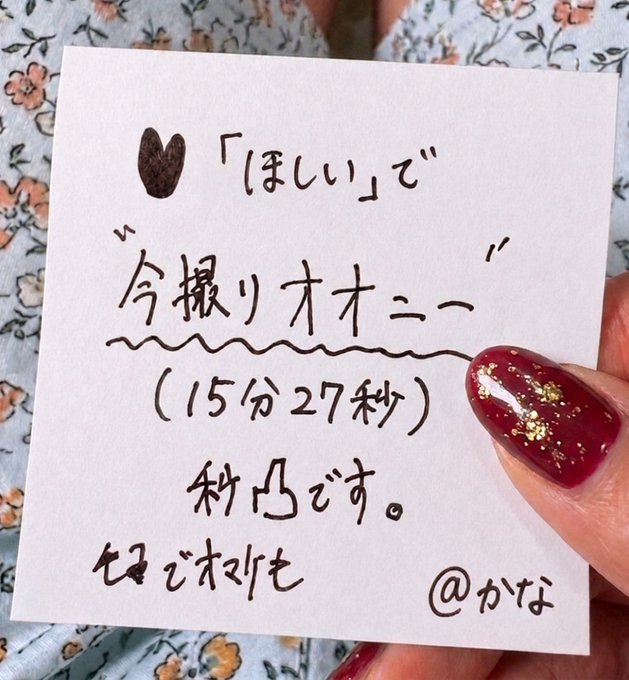 ♥「ほしい」で
"今撮りオオニー"
(15分27秒)
秒凸です。
でオマケも
@かな